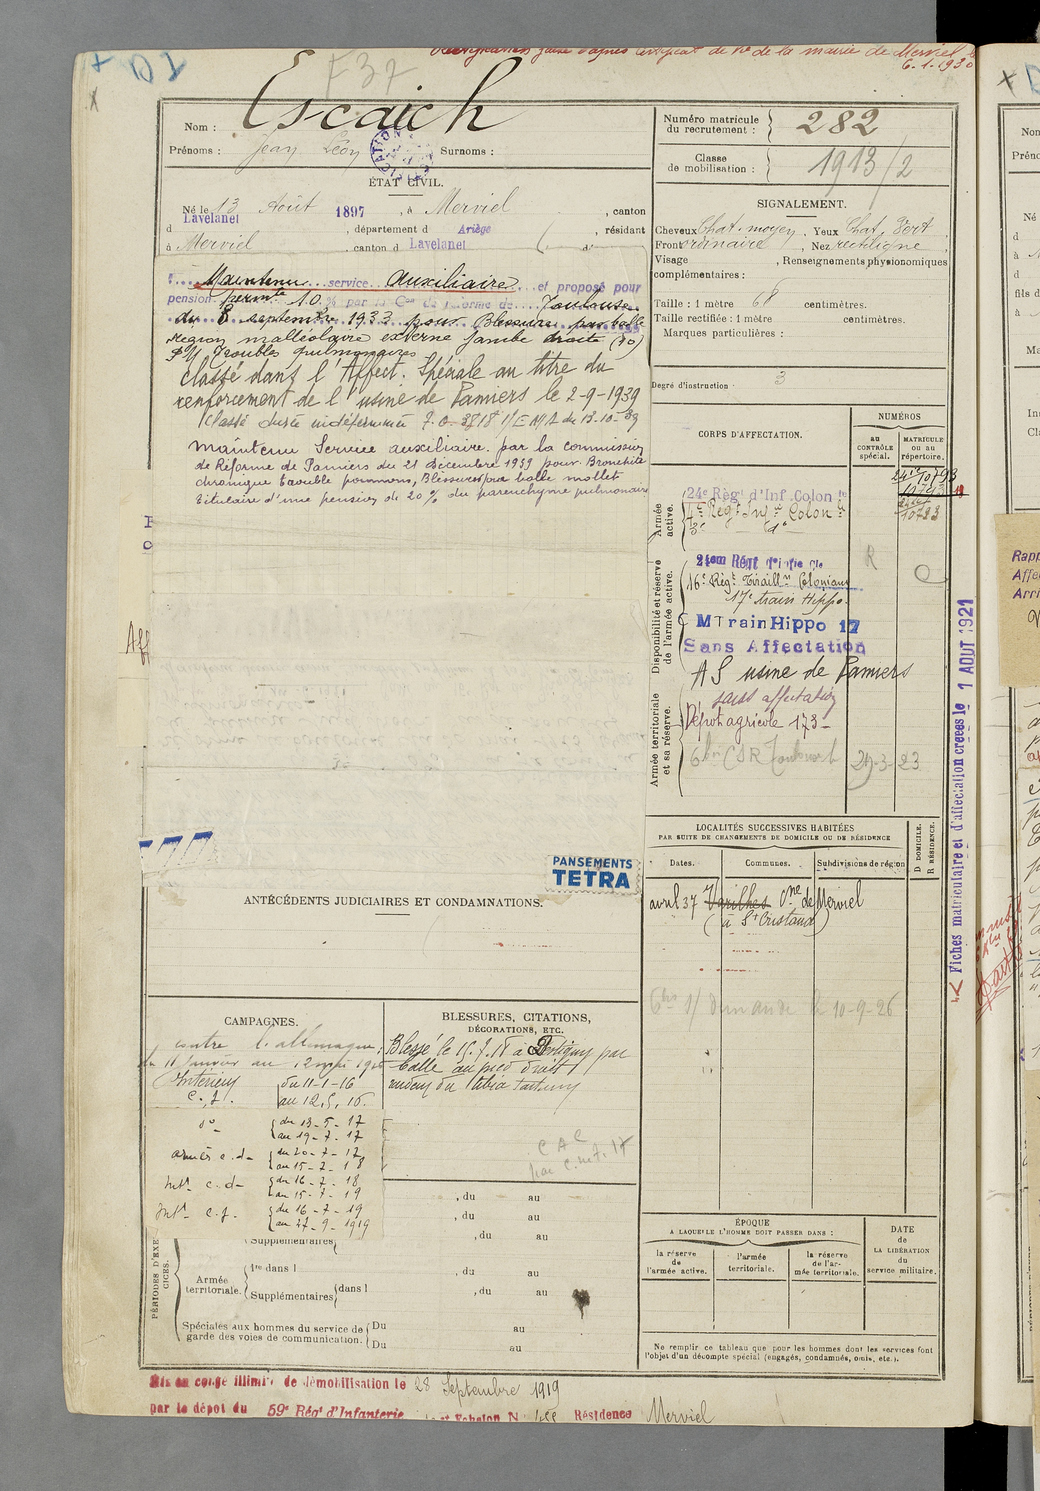 de la mairie de Merviel
6-1-1930
F37
Nom : Escaich
Prénoms : Jean Léon Surnoms :
ÉTAT CIVIL.
Né le 13 Août 1897, à Merviel, canton
d Lavelanet, département d Ariège, résidant
à Merviel, canton d Lavelanet d
Maintenu service Auxiliaire et proposé pour
pension permte 10 % par la Con de réforme de Toulouse
du 8 septembre 1933 pour Blessure par balle
région malléolaire externe jambe droite (10)
Troubles pulmonaires
Classé dans l'Affect. Spéciale au titre du
renforcement de l'usine de Pamiers le 2-9-1939
Classé durée indéterminée
Maintenu Service auxiliaire par la commission
de Réforme de Pamiers du 21 décembre 1939 pour Bronchite
chronique double poumons, Blessures par balle mollet
titulaire d'une pension de 20% du parenchyme pulmonaire
Aff
PANSEMENTS
TETRA
ANTÉCÉDENTS JUDICIAIRES ET CONDAMNATIONS.
CAMPAGNES.
contre l'allemagne :
11 Janvier au 12 mai
Intérieur du 11-1-16
C. J. au 12.5.16.
do du 13-5-17
au 19-7-17
armées c.d- du 20-7-17
au 15-7-18
Intr c.d- du 16-7-18
au 15-7-19
Intr c.J- du 16-7-19
au 27-9-1919
BLESSURES, CITATIONS,
DÉCORATIONS, ETC.
Blessé le 15.7.18 à par
balle au pied droit
CAC
, du au
, du au
Supplémentaires , du au
PÉRIODES D'EXERCICES.
Armée territoriale.
1re dans l , du au
Supplémentaires dans l , du au
Spéciales aux hommes du service de garde des voies de communication.
Du au
Du au
Mis en congé illimité de démobilisation le 28 Septembre 1919
par le dépôt du 59e Régt d'Infanterie et Echelon N Résidence Merviel
Numéro matricule du recrutement : 282
Classe de mobilisation : 1913/2
SIGNALEMENT.
Cheveux Chat. moyen, Yeux Chat. Vert
Front ordinaire, Nez rectiligne
Visage , Renseignements physionomiques
complémentaires :
Taille : 1 mètre 68 centimètres.
Taille rectifiée : 1 mètre centimètres.
Marques particulières :
Degré d'instruction : 3
CORPS D'AFFECTATION.
NUMÉROS
au CONTRÔLE spécial.
MATRICULE ou au répertoire.
Armée active.
24e Régt d'Inf Colon le
4e Régt Infie Colonle
3e do
10793
Disponibilité et réserve de l'armée active.
24em Régt d'Infie Cle
16e Régt Tiraillrs Coloniaux
17e train Hippo.
C M Train Hippo 17
Sans Affectation
AS usine de Pamiers
Armée territoriale et sa réserve.
sans affectation
Dépôt agricole 173
29-3-23
Fiches matriculaire et d'affectation créées le 1 AOUT 1921
LOCALITÉS SUCCESSIVES HABITÉES
PAR SUITE DE CHANGEMENTS DE DOMICILE OU DE RÉSIDENCE
Dates. Communes. Subdivisions de région
D DOMICILE.
R RÉSIDENCE.
avril 37 Varilhes Cne de Merviel
demande le 10-9-26
ÉPOQUE
À LAQUELLE L'HOMME DOIT PASSER DANS :
la réserve de l'armée active.
l'armée territoriale.
la réserve de l'armée territoriale.
DATE
de
LA LIBÉRATION
du
service militaire.
Ne remplir ce tableau que pour les hommes dont les services font
l'objet d'un décompte spécial (engagés, condamnés, omis, etc.).